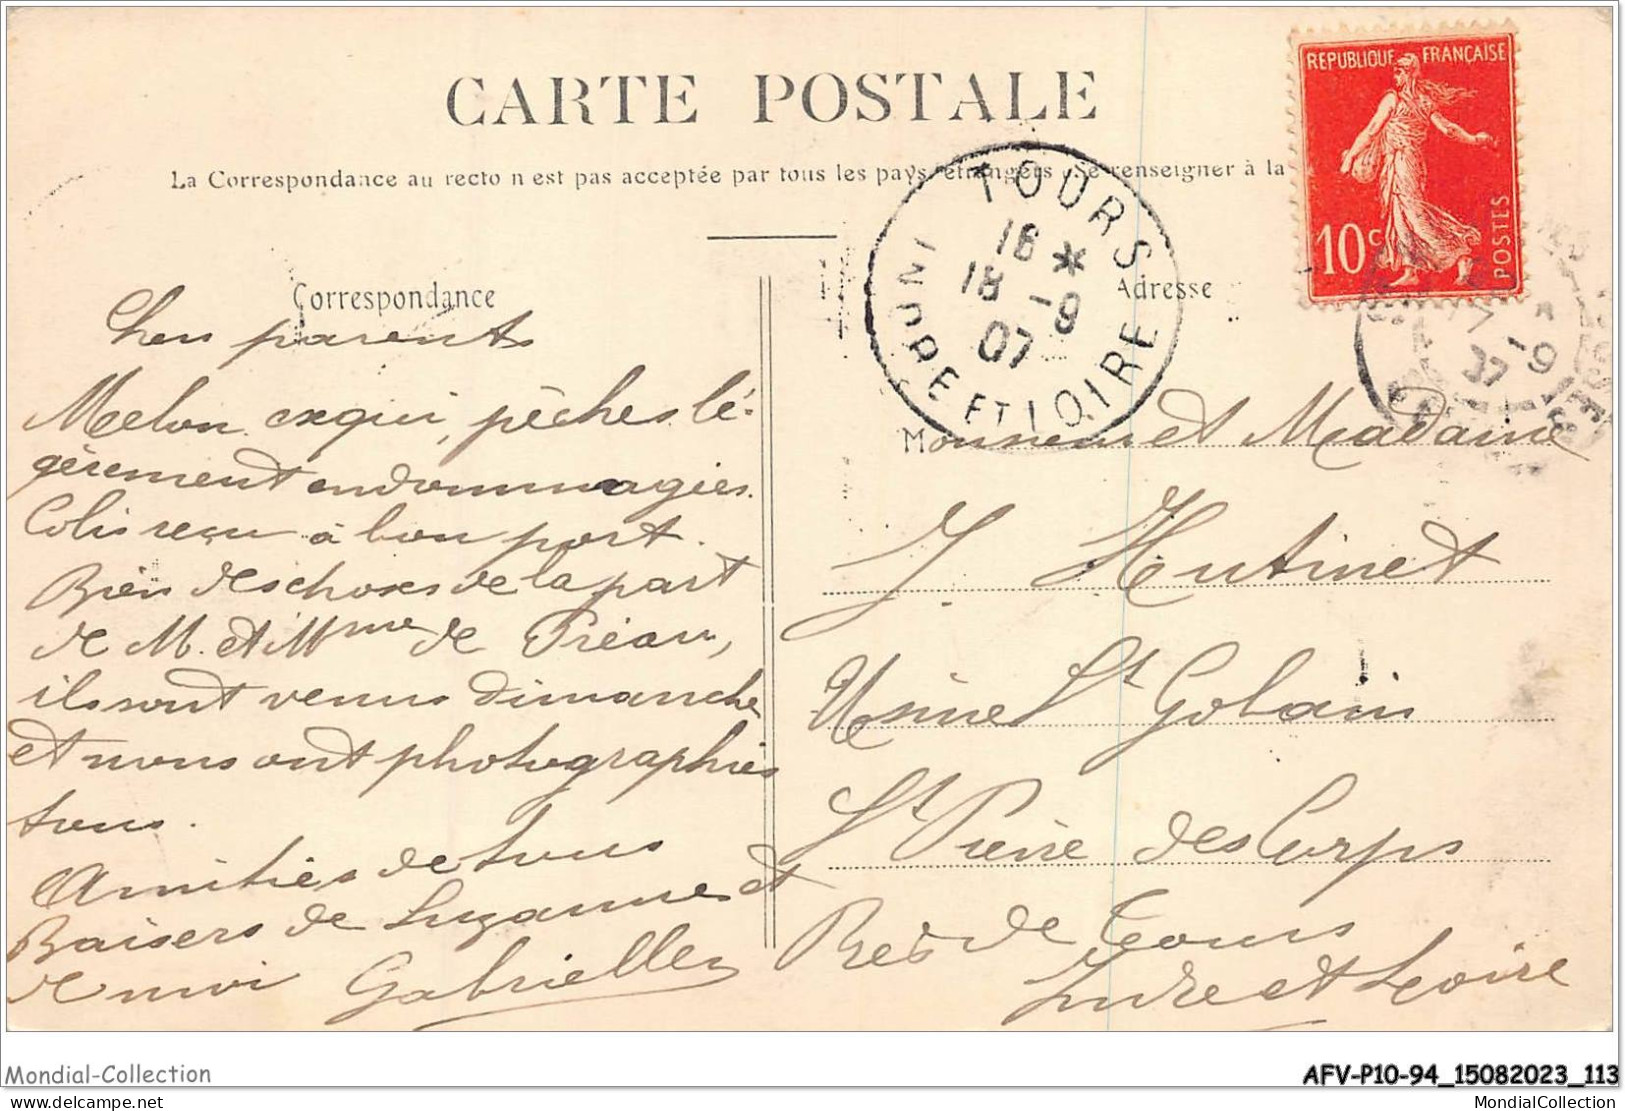 CARTE POSTALE
La Correspondance au recto n est pas acceptée par tous les pays étrangers Se renseigner à la
REPUBLIQUE FRANÇAISE
10c
POSTES
TOURS
16 *
18 -9
07
INDRE ET LOIRE
Correspondance
Chers parents
Melon exqui, pêches lé-
gèrement endommagées.
Colis reçu à bon port.
Bien des choses de la part
de M. et Mme de Préau,
ils sont venus Dimanche
et nous ont photographiés
tous.
Amitiés de tous
Baisers de Suzanne et
de moi Gabrielle
Adresse
Monsieur et Madame
J. Hutinet
Usine St Gobain
St Pierre des Corps
Près de Tours
Indre et Loire
-9
Mondial-Collection
AFV-P10-94_15082023_113
delcampe.net
MondialCollection